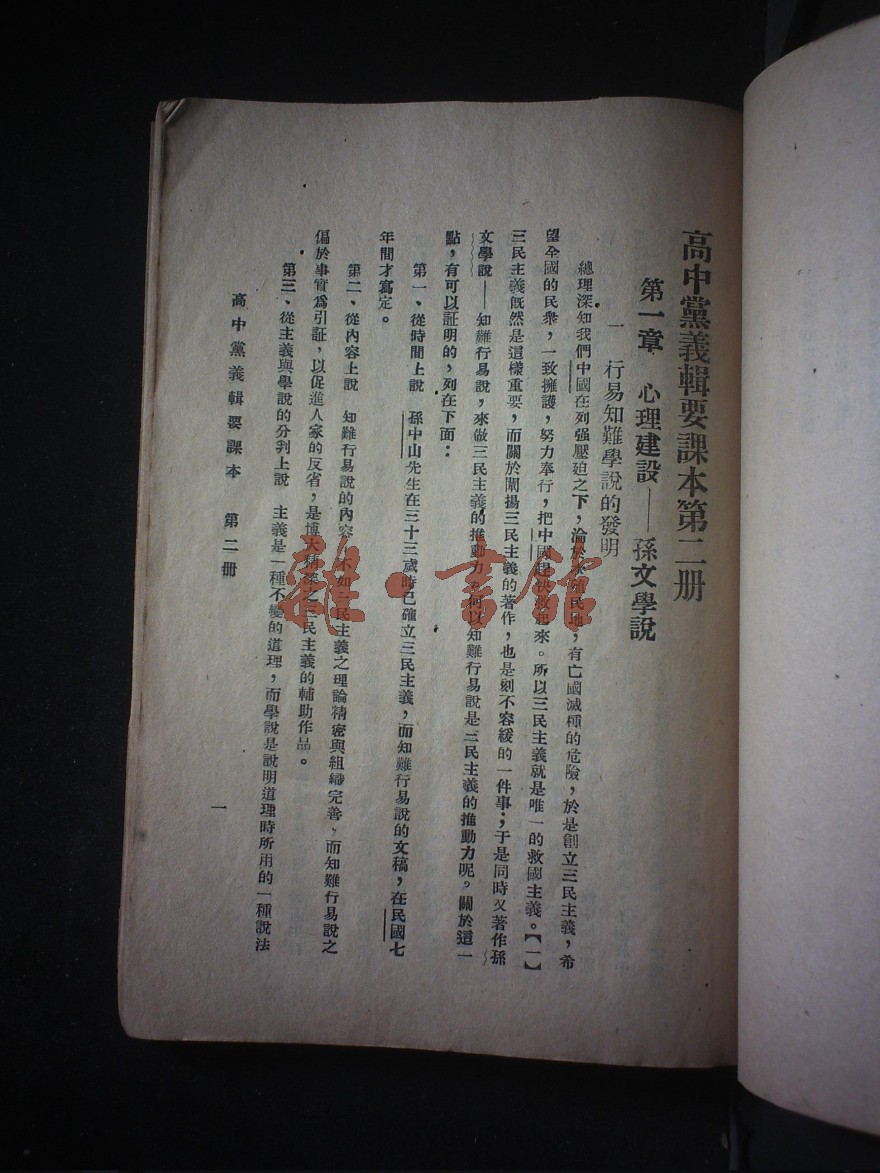 高中黨義輯要課本第二册
第一章 心理建設——孫文學說
一 行易知難學說的發明
總理深知我們中國在列强壓迫之下，淪於次殖民地，有亡國滅種的危險，於是創立三民主義，希
望全國的民衆，一致擁護，努力奉行，把中國趕快救起來。所以三民主義就是唯一的救國主義。【一】
三民主義既然是這樣重要，而關於闡揚三民主義的著作，也是刻不容緩的一件事；于是同時又著作孫
文學說——知難行易說，來做三民主義的推動力。何以知難行易說是三民主義的推動力呢。關於這一
點，有可以証明的，列在下面：
第一、從時間上說 孫中山先生在三十三歲時已確立三民主義，而知難行易說的文稿，在民國七
年間才寫定。
第二、從內容上說 知難行易說的內容，不如三民主義之理論精密與組織完善，而知難行易說之
偏於事實爲引証，以促進人家的反省，是博大精深之三民主義的輔助作品。
第三、從主義與學說的分判上說 主義是一種不變的道理，而學說是說明道理時所用的一種說法
高中黨義輯要課本 第二册
一
雜·書館